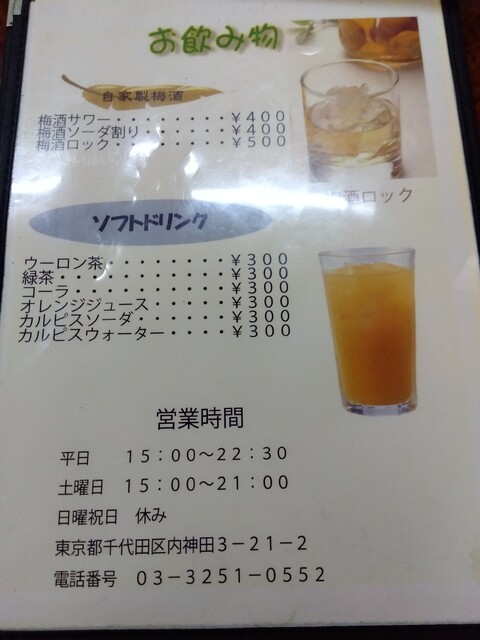 お飲み物
自家製梅酒
梅酒サワー・・・・・・・・¥４００
梅酒ソーダ割り・・・・・・¥４００
梅酒ロック・・・・・・・・¥５００
酒ロック
ソフトドリンク
ウーロン茶・・・・・・・・・¥３００
緑茶・・・・・・・・・・・・¥３００
コーラ・・・・・・・・・・・¥３００
オレンジジュース・・・・・・¥３００
カルピスソーダ・・・・・・・¥３００
カルピスウォーター・・・・・¥３００
営業時間
平日　１５：００～２２：３０
土曜日　１５：００～２１：００
日曜祝日　休み
東京都千代田区内神田３－２１－２
電話番号　０３－３２５１－０５５２